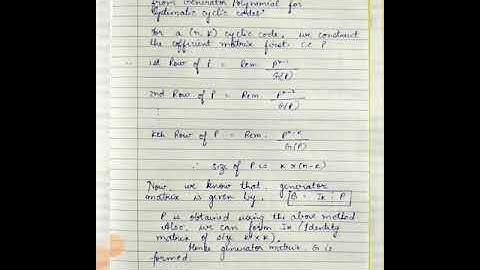 from Generator Polynomial for
Systematic cyclic codes.
For a (n, k) cyclic code, we construct
the cofficient matrix first. i.e P
∴ 1st Row of P = Rem. P^n-1 / G(P)
2nd Row of P = Rem. P^n-2 / G(P)
⋮
kth Row of P = Rem. P^n-k / G(P)
∴ size of P is k x (n-k)
Now, we know that, generator
matrix is given by, G = Ik : P
P is obtained using the above method
Also, we can form Ik (Identity
matrix of size k x k).
Hence generator matrix G is
formed